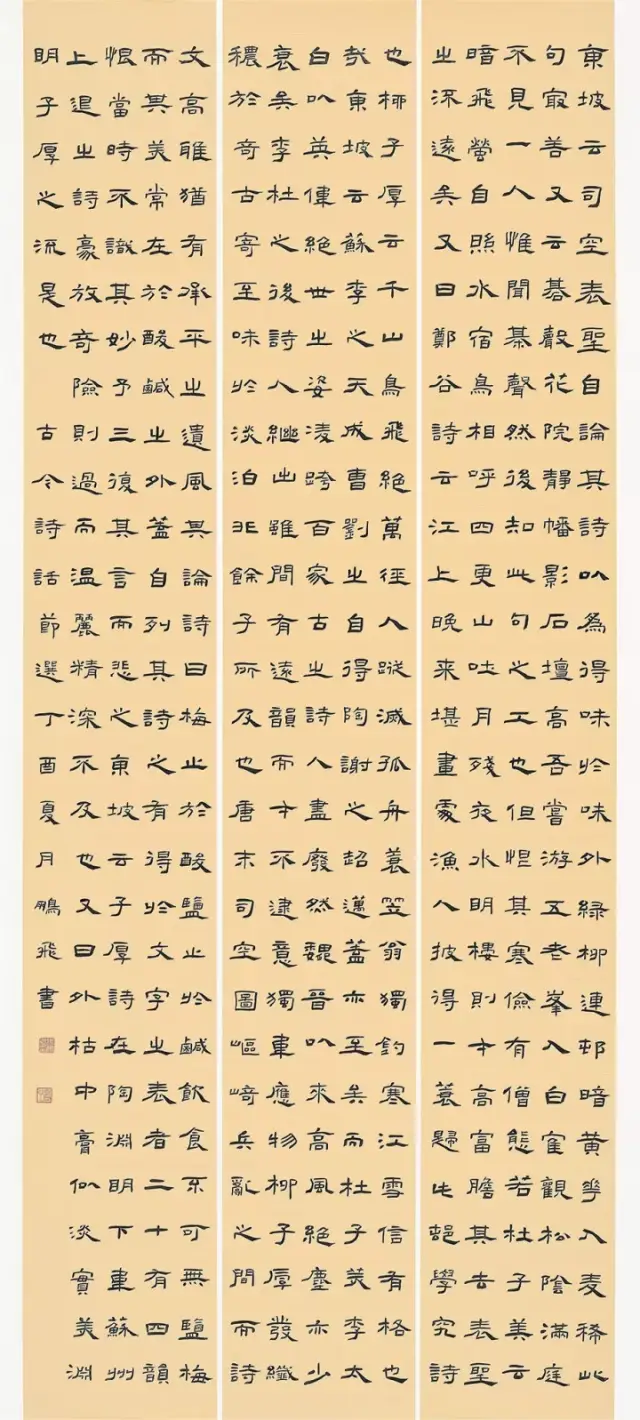 東坡云司空表聖自論其詩以為得味於味外綠柳連邨暗黃花入麥稀此
句最善又云棊聲花院靜幡影石壇高吾嘗游五老峯入白雀觀松陰滿庭
不見一人惟聞棊聲然後知此句之工也但恨其寒儉有僧態若杜子美云
暗飛螢自照水宿鳥相呼四更山吐月殘夜水明樓則才高富贍其去表聖
之深遠矣又曰鄭谷詩云江上晚來堪畫處漁人披得一蓑歸此邨學究詩
也柳子厚云千山鳥飛絕萬徑人蹤滅孤舟蓑笠翁獨釣寒江雪信有格也
哉東坡云蘇李之天成曹劉之自得陶謝之超邁蓋亦至矣而杜子美李太
白以英偉絕世之姿凌跨百家古之詩人盡廢然魏晉以來高風絕塵亦少
衰矣李杜之後詩人繼出雖間有遠韻而才不逮意獨韋應物柳子厚發纖
穠於奇古寄至味於淡泊非餘子所及也唐末司空圖嶇崎兵亂之間而詩
文高雅猶有承平之遺風其論詩曰梅止於酸鹽止於鹹飲食不可無鹽梅
而其美常在於酸鹹之外蓋自列其詩之有得於文字之表者二十有四韻
恨當時不識其妙予三復其言而悲之東坡云子厚詩在陶淵明下韋蘇州
上退之詩豪放奇險則過而溫麗精深不及也又曰外枯中膏似淡實美淵
明子厚之流是也 古今詩話節選丁酉夏月鵬飛書